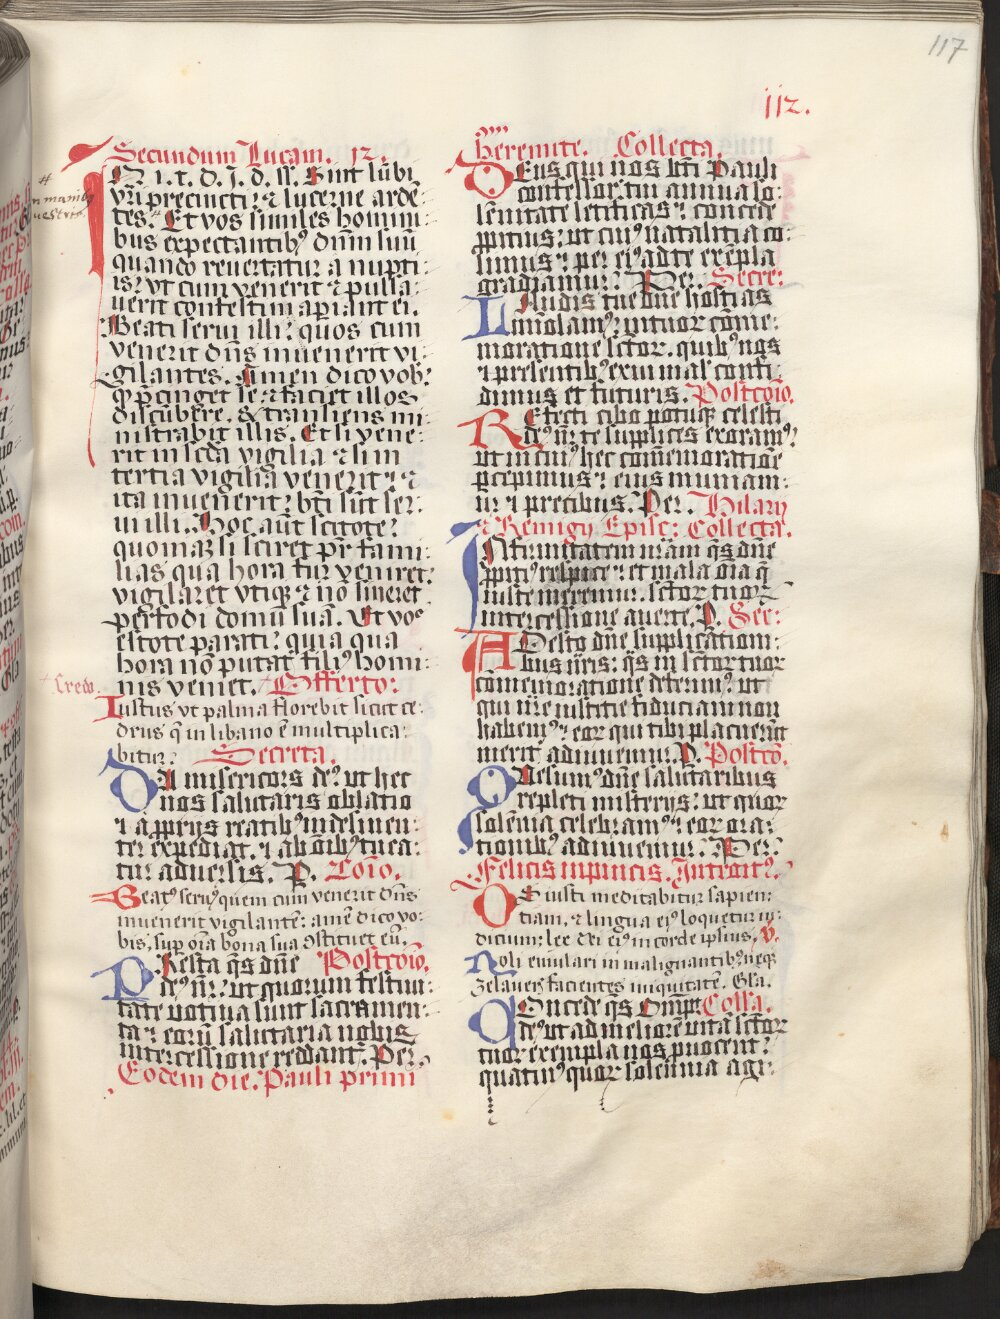 117
112.
Secundum Lucam. 12.
IN i. t. d. J. d. ss. Sint lūbi
vr̄i precincti: ⁊ lucerne ardē
tes. Et vos similes homini:
bus expectantibꝰ dn̄m suū
quando reuertatur a nupti:
is: vt cum venerit ⁊ pulsa:
uerit confestim aperiant ei.
Beati serui illi: quos cum
venerit dn̄s inuenerit vi:
gilantes. Amen dico vob:
qꝫ p̄cinget se: ⁊ faciet illos
discūbere. & transiens mi:
nistrabit illis. Et si vene:
rit in scd̄a vigilia ⁊ si in
tertia vigilia venerit: ⁊
ita inuenerit: bt̄i sūt ser:
ui illi. Hoc aūt scitote:
quoniaꝫ si sciret pr̄ fami:
lias qua hora fur veniret:
vigilaret vtiqꝫ ⁊ nō sineret
perfodi domū suā. Et vos
estote parati: quia qua
hora nō putat̄ filiꝰ homi:
nis veniet. Offerto:
+ Credo.
Iustus vt palma florebit sicut ce:
drus q̄ in libano ē multiplica:
bitur. Secreta.
DA misericors deꝰ ut hec
nos salutaris oblatio
⁊ a pprijs reatibꝰ indesinen:
ter expediat. ⁊ ab oībꝰ tuea:
tur aduersis. P. Cōio.
Beatꝰ seruꝰ quem cum venerit dn̄s
inuenerit vigilantē: amē dico vo:
bis, sup oīa bona sua ꝯstituet eū.
PResta qs dn̄e Postcoīo.
deꝰ nr̄: ut quorum festiui:
tate votiua sunt sacramen:
ta: eorū salutaria nobis
intercessione reddant. Per.
Eodem die. Pauli primi
heremite. Collecta.
DEus qui nos bt̄i Pauli
confessor̄ tui annua so:
lēnitate letificas: concede
ppitius: ut cuiꝰ natalitia co:
limus: per eiꝰ ad te exēpla
gradiamur. Per. Secre:
LAudis tue dn̄e hostias
immolamꝰ: in tuoꝝ cōme:
moratione sctoꝝ. quibꝰ nos
⁊ presentibꝰ exui mal confi:
dimus et futuris. Postcoīo.
REfecti cibo potuqꝫ celesti
deꝰ nr̄: te supplices exoramꝰ:
ut in cuiꝰ hec cōmemoratione
percepimus: eius muniam:
ur ⁊ precibus. Per. Hilarij
⁊ Remigij Episc: Collecta.
INfirmitatem nr̄am qs dn̄e
ppitiꝰ respice: et mala oīa q̄
iuste meremur. sctoꝝ tuoꝝ
intercessione auerte. P. Sec:
ADesto dn̄e supplication:
ibus nr̄is: qs in sctoꝝ tuoꝝ
cōmemoratione deferimꝰ: ut
qui nr̄e iustitie fiduciam non
habemꝰ: eoꝝ qui tibi placuerūt
merit adiuuemur. P. Postcō.
QUesumꝰ dn̄e salutaribus
repleti misterijs: ut quoꝝ
solēnia celebramꝰ: eoꝝ ora:
tionibꝰ adiuuemur. Per.
Felicis in pincis. Introitꝰ.
OS iusti meditabitur sapien:
tiam, ⁊ lingua eiꝰ loquetur iu:
dicium: lex dei eiꝰ in corde ipsius. v.
Noli emulari in malignantibꝰ: neqꝫ
zelaueris facientes iniquitatē. Gl̄a.
COncede qs omp̄s Colla.
deꝰ ut ad meliorē vitā sctoꝝ
tuoꝝ exempla nos puocent:
quatinꝰ quoꝝ solennia agi: